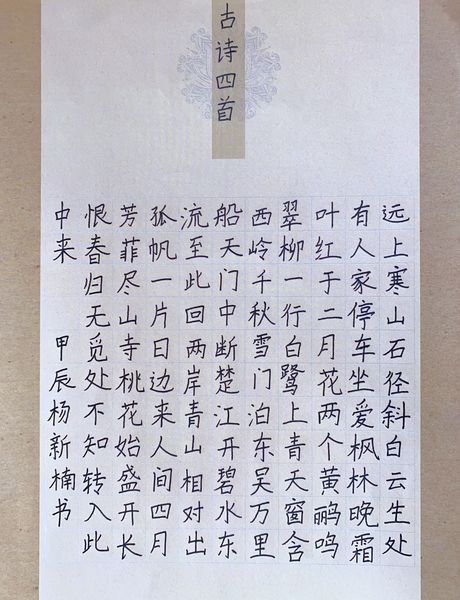 古诗四首
远上寒山石径斜白云生处
有人家停车坐爱枫林晚霜
叶红于二月花两个黄鹂鸣
翠柳一行白鹭上青天窗含
西岭千秋雪门泊东吴万里
船天门中断楚江开碧水东
流至此回两岸青山相对出
孤帆一片日边来人间四月
芳菲尽山寺桃花始盛开长
恨春归无觅处不知转入此
中来 甲辰杨新楠书